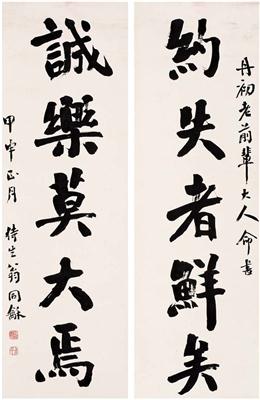 丹初老前輩大人命書
約失者鮮矣
誠樂莫大焉
甲申正月
侍生翁同龢